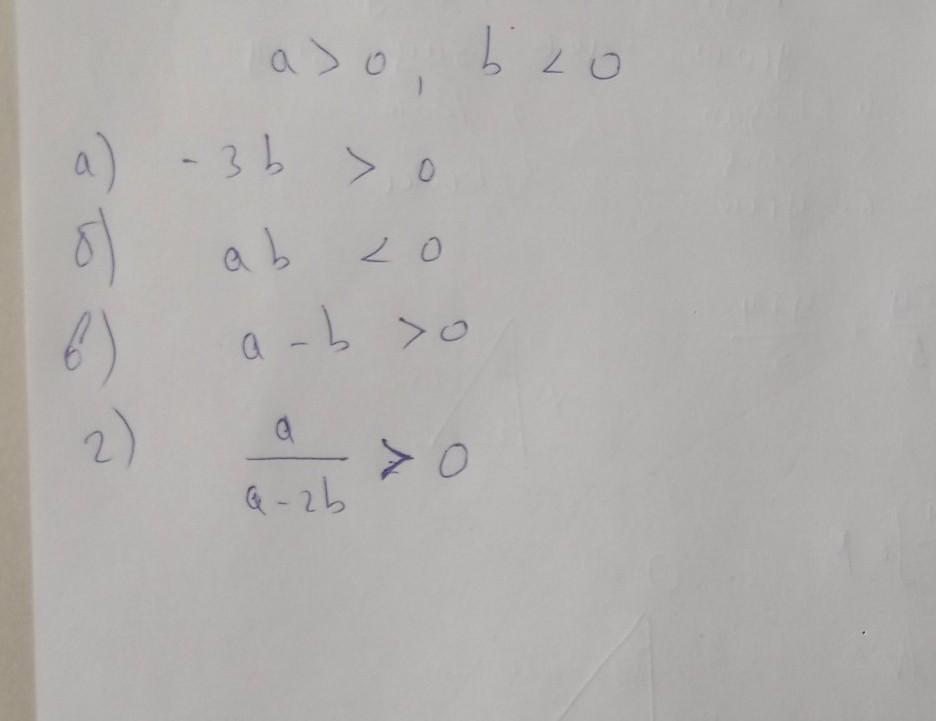 a > 0, b < 0
а) -3b > 0
б) ab < 0
в) a - b > 0
г) a / (a - 2b) > 0